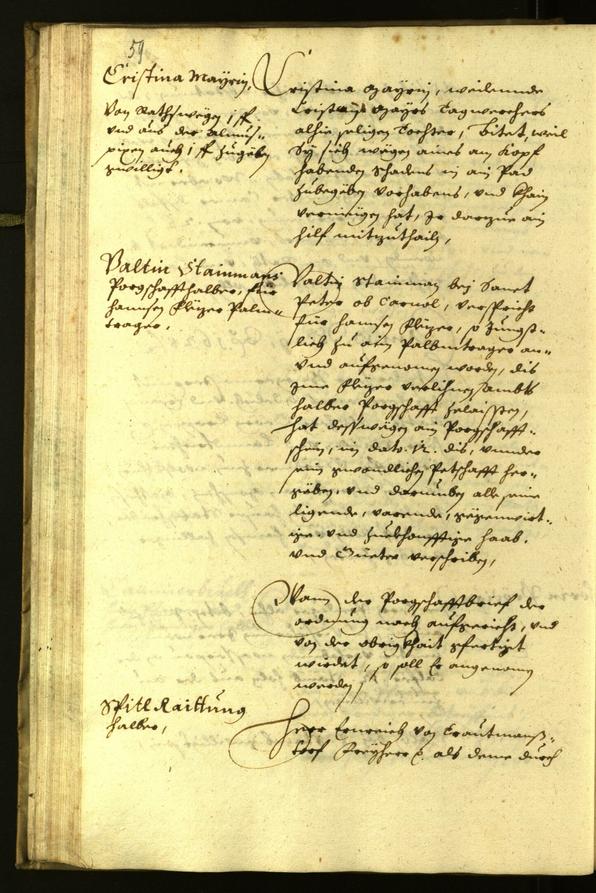 59
Cristina Mayrin,
Von Rathswegen 1 ff.
vnd aus der Almus-
pixen auch 1 ff zugeben
gwilligt.
Cristina Mayrin, weilennde
Cristan Mayrs Tagwerchers
alhie seligen Tochter, Bitet, weil
Sy sich wegen aines am Kopf
habenden Schadens in ain Pad
zubegeben vorhabens, und khain
vermügen hat, Ir darzue ain
hilf mitzuthailn,
Valtin Stainmans
Porgschafft halber, für
Hannsen Pluger Palm-
trager.
Valtin Stainman bey Sanct
Peter ob Carnol, verspricht
für Hannsen Pluger, so Jungst-
lich zu ain Palbmtrager an-
vnd aufgenomen worden, dis
ime Pluger verlihnen Ambts
halber Porgschafft zelaisten,
hat desswegen ain Porgschafft-
schein, im dato 12. dis, vnnder
sein gwondlichen Petschafft her-
geben, vnd darinnen alle seine
ligende, varende, gegenwirt-
ige vnd zuekhonfftige Haab
vnd Güeter verschriben,
Wann der Porgschafftbrief der
ordnung nach aufgericht, vnd
von der obrigkhait gfertigt
wierdet, so soll Er angenomen
werden,
Spitl Raittung
halber,
Herr Ernreich von Trautmanß-
torf Freyherr als deme durch